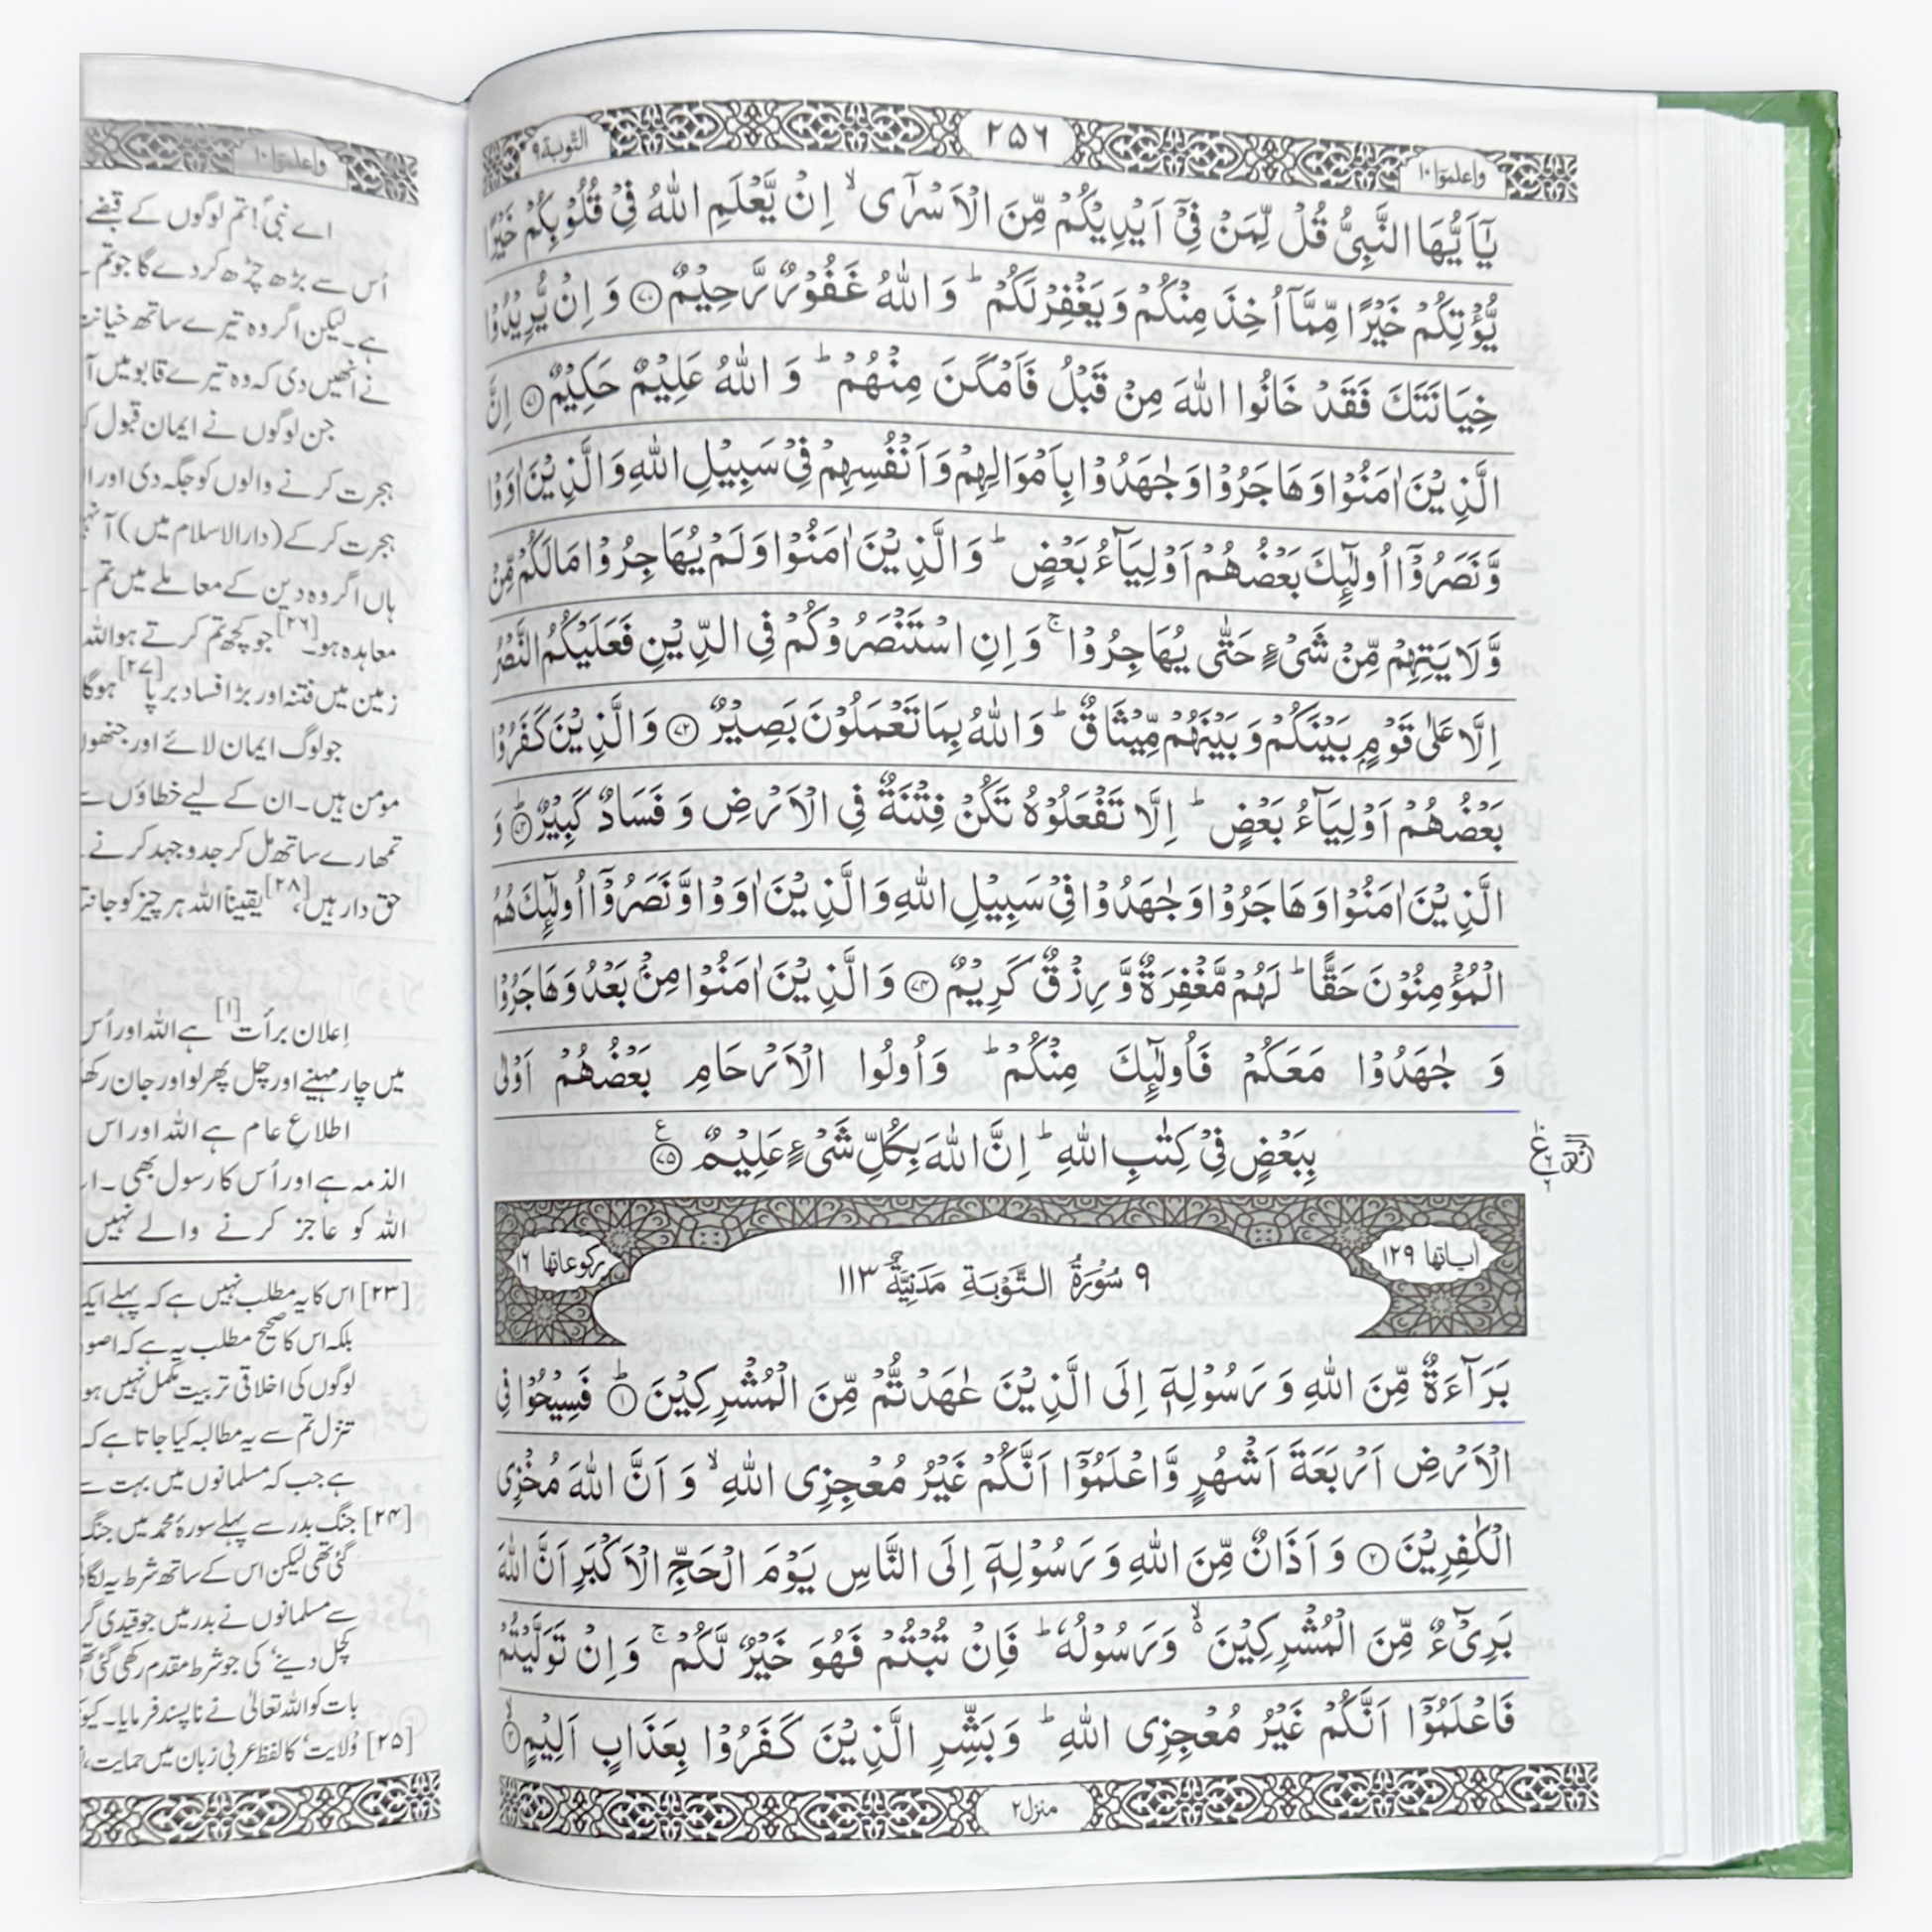 واعلموٓا ١٠
٢٥٦
التوبة ٩
يٰٓاَيُّهَا النَّبِيُّ قُلْ لِّمَنْ فِيْٓ اَيْدِيْكُمْ مِّنَ الْاَسْرٰٓى ۙ اِنْ يَّعْلَمِ اللّٰهُ فِيْ قُلُوْبِكُمْ خَيْرًا
يُّؤْتِكُمْ خَيْرًا مِّمَّآ اُخِذَ مِنْكُمْ وَيَغْفِرْ لَكُمْ ؕ وَ اللّٰهُ غَفُوْرٌ رَّحِيْمٌ ﴿٧٠﴾ وَ اِنْ يُّرِيْدُوْا
خِيَانَتَكَ فَقَدْ خَانُوا اللّٰهَ مِنْ قَبْلُ فَاَمْكَنَ مِنْهُمْ ؕ وَ اللّٰهُ عَلِيْمٌ حَكِيْمٌ ﴿٧١﴾ اِنَّ
الَّذِيْنَ اٰمَنُوْا وَهَاجَرُوْا وَجٰهَدُوْا بِاَمْوَالِهِمْ وَاَنْفُسِهِمْ فِيْ سَبِيْلِ اللّٰهِ وَالَّذِيْنَ اٰوَوْا
وَّنَصَرُوْٓا اُولٰٓئِكَ بَعْضُهُمْ اَوْلِيَآءُ بَعْضٍ ؕ وَالَّذِيْنَ اٰمَنُوْا وَلَمْ يُهَاجِرُوْا مَا لَكُمْ مِّنْ
وَّلَايَتِهِمْ مِّنْ شَيْءٍ حَتّٰى يُهَاجِرُوْا ۚ وَ اِنِ اسْتَنْصَرُوْكُمْ فِي الدِّيْنِ فَعَلَيْكُمُ النَّصْرُ
اِلَّا عَلٰى قَوْمٍۭ بَيْنَكُمْ وَ بَيْنَهُمْ مِّيْثَاقٌ ؕ وَاللّٰهُ بِمَا تَعْمَلُوْنَ بَصِيْرٌ ﴿٧٢﴾ وَالَّذِيْنَ كَفَرُوْا
بَعْضُهُمْ اَوْلِيَآءُ بَعْضٍ ؕ اِلَّا تَفْعَلُوْهُ تَكُنْ فِتْنَةٌ فِي الْاَرْضِ وَ فَسَادٌ كَبِيْرٌ ﴿٧٣﴾ؕ وَ
الَّذِيْنَ اٰمَنُوْا وَهَاجَرُوْا وَجٰهَدُوْا فِيْ سَبِيْلِ اللّٰهِ وَالَّذِيْنَ اٰوَوْا وَّنَصَرُوْٓا اُولٰٓئِكَ هُمُ
الْمُؤْمِنُوْنَ حَقًّا ؕ لَهُمْ مَّغْفِرَةٌ وَّ رِزْقٌ كَرِيْمٌ ﴿٧٤﴾ وَالَّذِيْنَ اٰمَنُوْا مِنْۢ بَعْدُ وَهَاجَرُوْا
وَ جٰهَدُوْا مَعَكُمْ فَاُولٰٓئِكَ مِنْكُمْ ؕ وَاُولُوا الْاَرْحَامِ بَعْضُهُمْ اَوْلٰى
بِبَعْضٍ فِيْ كِتٰبِ اللّٰهِ ؕ اِنَّ اللّٰهَ بِكُلِّ شَيْءٍ عَلِيْمٌ ﴿٧٥﴾ع
اٰياتها ١٢٩
٩ سُوْرَةُ التَّوْبَةِ مَدَنِيَّةٌ ١١٣
ركوعاتها ١٦
بَرَآءَةٌ مِّنَ اللّٰهِ وَ رَسُوْلِهٖٓ اِلَى الَّذِيْنَ عٰهَدْتُّمْ مِّنَ الْمُشْرِكِيْنَ ﴿١﴾ؕ فَسِيْحُوْا فِي
الْاَرْضِ اَرْبَعَةَ اَشْهُرٍ وَّاعْلَمُوْٓا اَنَّكُمْ غَيْرُ مُعْجِزِي اللّٰهِ ۙ وَ اَنَّ اللّٰهَ مُخْزِي
الْكٰفِرِيْنَ ﴿٢﴾ وَ اَذَانٌ مِّنَ اللّٰهِ وَ رَسُوْلِهٖٓ اِلَى النَّاسِ يَوْمَ الْحَجِّ الْاَكْبَرِ اَنَّ اللّٰهَ
بَرِيْٓءٌ مِّنَ الْمُشْرِكِيْنَ ۙ۬ وَرَسُوْلُهٗ ؕ فَاِنْ تُبْتُمْ فَهُوَ خَيْرٌ لَّكُمْ ۚ وَ اِنْ تَوَلَّيْتُمْ
فَاعْلَمُوْٓا اَنَّكُمْ غَيْرُ مُعْجِزِي اللّٰهِ ؕ وَ بَشِّرِ الَّذِيْنَ كَفَرُوْا بِعَذَابٍ اَلِيْمٍ ﴿٣﴾ۙ
منزل ٢
واعلموٓا ١٠
اے نبیؐ! تم لوگوں کے قبضے
اُس سے بڑھ چڑھ کر دے گا جو تم
ہے۔ لیکن اگر وہ تیرے ساتھ خیانت
نے انھیں دی کہ وہ تیرے قابو میں آ
جن لوگوں نے ایمان قبول
ہجرت کرنے والوں کو جگہ دی اور
ہجرت کر کے (دارالاسلام میں) آ
ہاں اگر وہ دین کے معاملے میں تم
معاہدہ ہو۔[۲۶] جو کچھ تم کرتے ہو اللہ
زمین میں فتنہ اور بڑا فساد برپا[۲۷] ہوگا
جو لوگ ایمان لائے اور جنھوں
مومن ہیں۔ ان کے لیے خطاؤں
تمھارے ساتھ مل کر جدوجہد کرنے
حق دار ہیں،[۲۸] یقیناً اللہ ہر چیز کو
اِعلان برأت[۱] ہے اللہ اور اُس
میں چار مہینے اور چل پھر لو اور جان
اطلاعِ عام ہے اللہ اور اس
الذمہ ہے اور اُس کا رسول بھی۔
اللہ کو عاجز کرنے والے نہیں
[۲۳] اس کا یہ مطلب نہیں ہے کہ پہلے
بلکہ اس کا صحیح مطلب یہ ہے کہ
لوگوں کی اخلاقی تربیت مکمل نہیں
تنزل تم سے یہ مطالبہ کیا جاتا ہے کہ
ہے جب کہ مسلمانوں میں بہت
[۲۴] جنگ بدر سے پہلے سورۂ محمد میں جنگ
گئی تھی لیکن اس کے ساتھ شرط یہ
سے مسلمانوں نے بدر میں جو قیدی
کچل دینے’ کی جو شرط مقدم رکھی گئی
بات کو اللہ تعالیٰ نے ناپسند فرمایا۔
[۲۵] ’ولایت‘ کا لفظ عربی زبان میں حمایت،